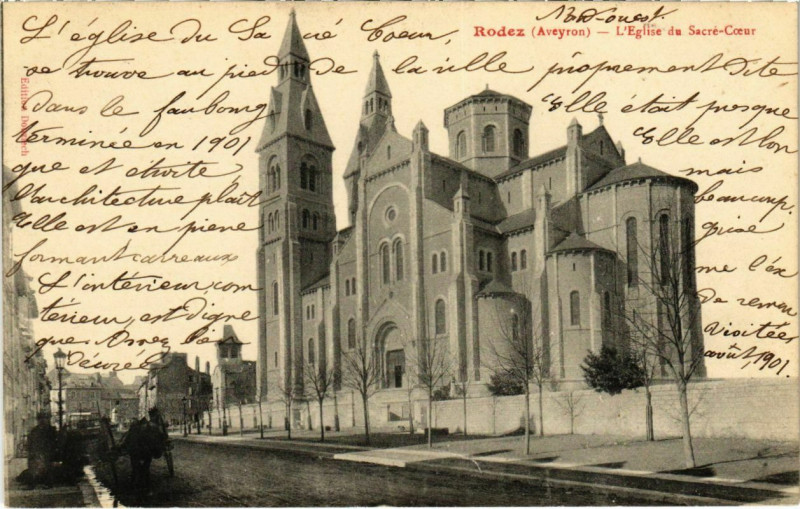 Nord-ouest.
Rodez (Aveyron) — L'Eglise du Sacré-Cœur
L'église du Sacré Coeur,
se trouve au pied de la ville proprement dite
dans le faubourg
Elle était presque
terminée en 1901
Elle est lon
que et étroite,
mais
l'architecture plaît
beaucoup.
Elle est en pierre
grise
formant carreaux
L'intérieur, com
me l'ex
térieur, est digne
de remar
que
Visitée
août, 1901.